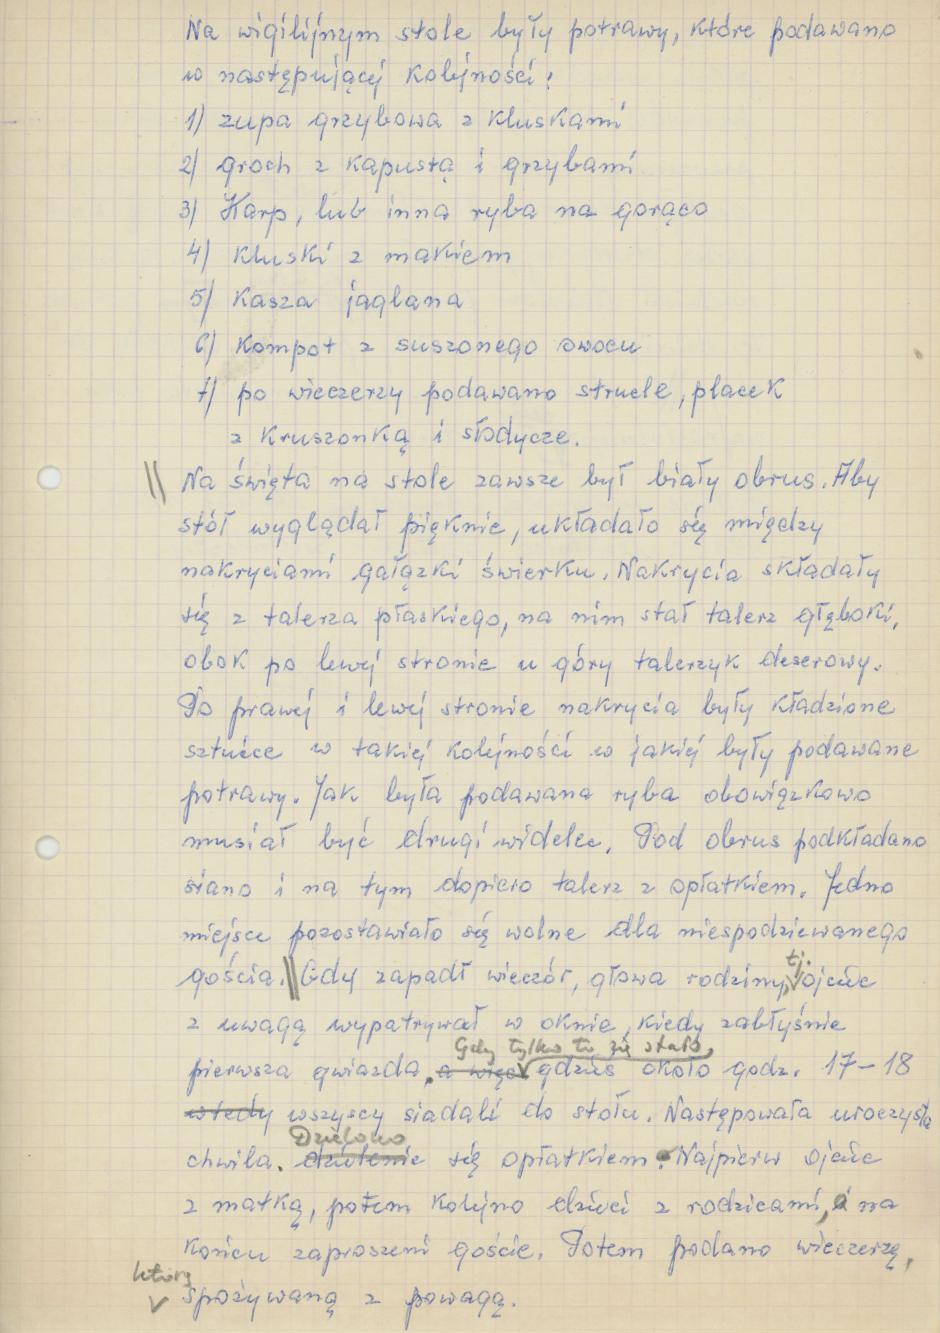 Na wigilijnym stole były potrawy, które podawano
w następującej kolejności:
1) zupa grzybowa z kluskami
2) groch z kapustą i grzybami
3) Karp, lub inna ryba na gorąco
4) kluski z makiem
5) kasza jaglana
6) kompot z suszonego owocu
7) po wieczerzy podawano strucle, placek
z kruszonką i słodycze.
Na święta na stole zawsze był biały obrus. Aby
stół wyglądał pięknie, układało się między
nakryciami gałązki świerku. Nakrycia składały
się z talerza płaskiego, na nim stał talerz głęboki,
obok po lewej stronie u góry talerzyk deserowy.
Po prawej i lewej stronie nakrycia były kładzione
sztućce w takiej kolejności w jakiej były podawane
potrawy. Jak była podawana ryba obowiązkowo
musiał być drugi widelec. Pod obrus podkładano
siano i na tym dopiero talerz z opłatkiem. Jedno
miejsce pozostawiało się wolne dla niespodziewanego
tj.
gościa. || Gdy zapadł wieczór, głowa rodziny, ojciec
z uwagą wypatrywał w oknie, kiedy zabłyśnie
Gdy tylko to się stało,
pierwsza gwiazda. a więc gdzieś około godz. 17-18
wtedy wszyscy siadali do stołu. Następowała uroczysta
Dzielono
chwila. dzielenie się opłatkiem. Najpierw ojciec
z matką, potem kolejno dzieci z rodzicami, a na
końcu zaproszeni goście. Potem podano wieczerzę,
którą
spożywaną z powagą.